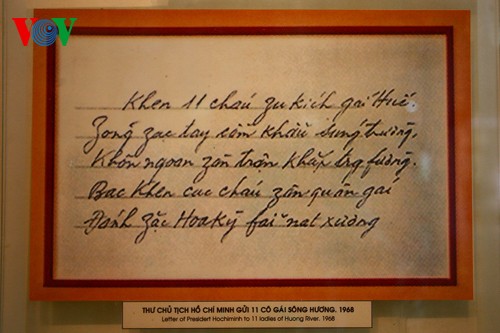 VOV
Khen 11 cháu zu kích gái Huế.
Zõng zạc tay cầm khẩu súng trường,
Khôn ngoan zàn trận khắp fường.
Bác khen các cháu zân quân gái
Đánh zặc Hoa Kỳ fải nát xương
THƯ CHỦ TỊCH HỒ CHÍ MINH GỬI 11 CÔ GÁI SÔNG HƯƠNG. 1968
Letter of Presidert Hochiminh to 11 ladies of Huong River. 1968